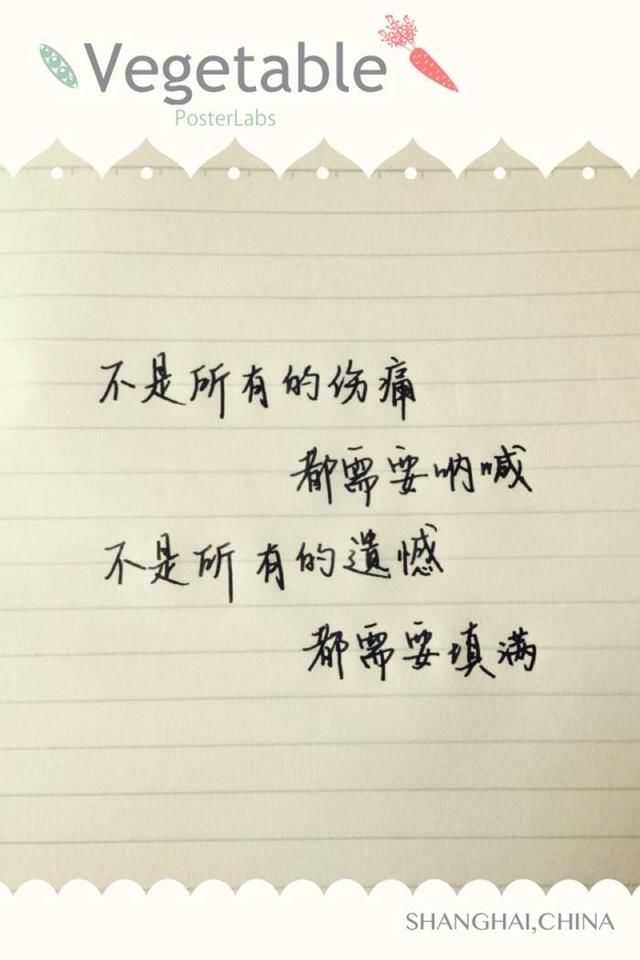 Vegetable
PosterLabs
不是所有的伤痛
都需要呐喊
不是所有的遺憾
都需要填满
SHANGHAI,CHINA